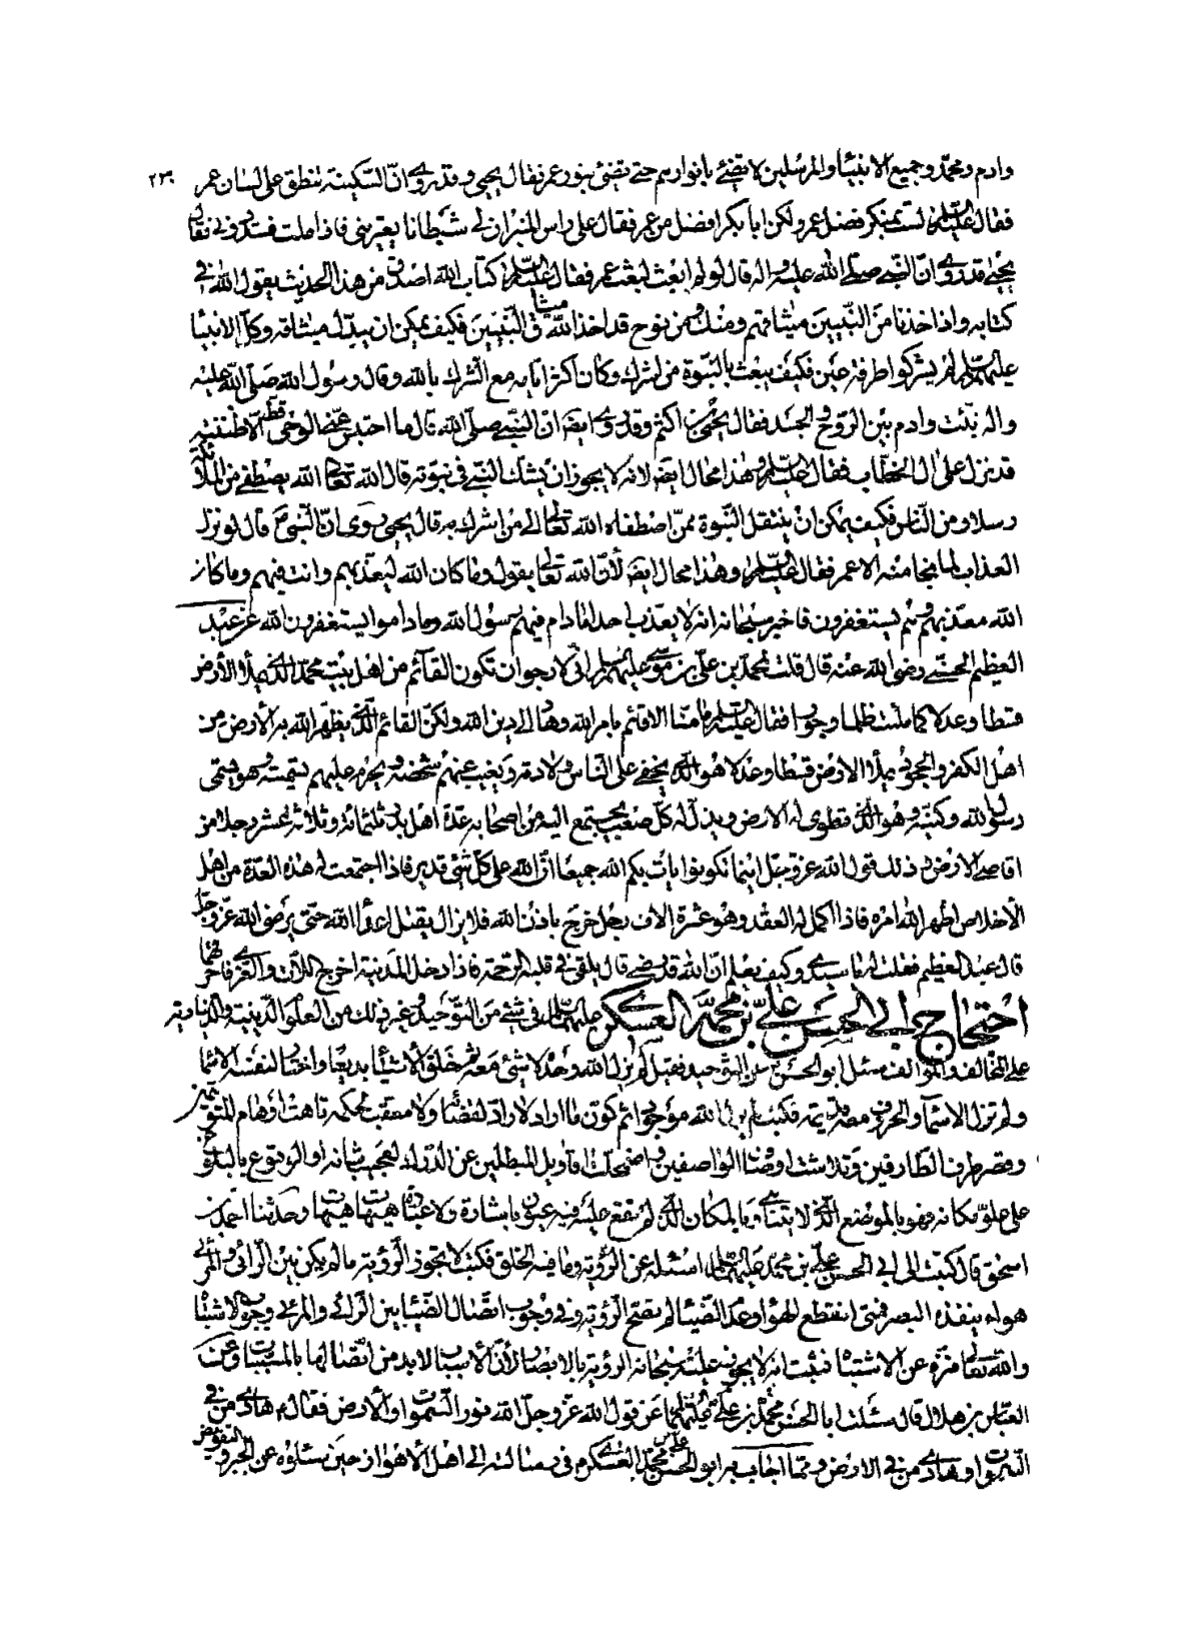 وادم ومحمد وجميع الانبياء والمرسلين لا تضئ بانوارهم حتى تضئ بنور عمر فقال يحيى وقد روى ان السكينة تنطق على لسان عمر ٢٣٠
فقال عليه السلام لست بمنكر فضل عمر ولكن ابا بكر افضل من عمر فقال على راس المنبر ان لى شيطانا يعترينى فاذا ملت فسددونى فقال
يحيى قد روى ان النبى صلى الله عليه واله قال لو لم ابعث لبعث عمر فقال عليه السلام كتاب الله اصدق من هذا الحديث يقول الله فى
كتابه واذ اخذنا من النبيين ميثاقهم ومنك ومن نوح قد اخذ الله ميثاق النبيين فكيف يمكن ان يبدل ميثاقه وكل الانبياء
عليهم السلام لم يشركوا طرفة عين فكيف يبعث بالنبوة من اشرك وكان اكثر ايامه مع الشرك بالله وقال رسول الله صلى الله عليه
واله نبئت وادم بين الروح والجسد فقال يحيى بن اكثم وقد روى ايضا ان النبى صلى الله قال ما احتبس عنى الوحى قط الا ظننته
قد نزل على ال الخطاب فقال عليه السلام وهذا محال ايضا لانه لا يجوز ان يشك النبى فى نبوته قال الله تعالى الله يصطفى من الملائكة
رسلا ومن الناس فكيف يمكن ان ينتقل النبوة ممن اصطفاه الله تعالى الى من اشرك به قال يحيى روى ان النبى ص قال لو نزل
العذاب لما نجا منه الا عمر فقال عليه السلام وهذا محال ايضا لأن الله تعالى يقول وما كان الله ليعذبهم وانت فيهم وما كان
الله معذبهم وهم يستغفرون فاخبر سبحانه انه لا يعذب احدا ما دام فيهم رسول الله وما داموا يستغفرون الله عن عبد
العظيم الحسنى رضى الله عنه قال قلت لمحمد بن على بن موسى عليهم السلام انى لارجو ان تكون القائم من اهل بيت محمد الذى يملأ الأرض
قسطا وعدلا كما ملئت ظلما وجورا فقال عليه السلام ما منا الا قائم بامر الله وهاد الى دين الله ولكن القائم الذى يطهر الله به الأرض من
اهل الكفر والجحود ويملأ الارض قسطا وعدلا هو الذى يخفى على الناس ولادته ويغيب عنهم شخصه ويحرم عليهم تسميته وهو سمى
رسول الله وكنيه وهو الذى تطوى له الارض ويذل له كل صعب يجتمع اليه من اصحابه عدة اهل بدر ثلثمائة وثلاثة عشر رجلا من
اقاصى الارض وذلك قول الله عز وجل اينما تكونوا يأت بكم الله جميعا ان الله على كل شئ قدير فاذا اجتمعت له هذه العدة من اهل
الاخلاص اظهر الله امره فاذا اكمل له العقد وهو عشرة الاف رجل خرج باذن الله فلا يزال يقتل اعداء الله حتى يرضى الله عز وجل
قال عبد العظيم فقلت له يا سيدى وكيف يعلم ان الله قد رضى قال يلقى فى قلبه الرحمة فاذا دخل المدينة اخرج اللات والعزى فاحرقهما
احتجاج ابى الحسن على بن محمد العسكرى عليهما السلام فى شئ من التوحيد وغير ذلك من العلوم الدينية والدنياوية
على المخالف والموالف سئل ابو الحسن عن التوحيد فقيل لم يزل الله وحده لا شئ معه ثم خلق الاشياء بديعا واختار لنفسه الاسماء
ولم تزل الاسماء والحروف معه قديمة فكتب لم يزل الله موجودا ثم كون ما اراد لا راد لقضائه ولا معقب لحكمه تاهت اوهام المتوهمين
وقصر طرف الطارفين وتلاشت اوصاف الواصفين واضمحلت اقاويل المبطلين عن الدرك لعجيب شانه او الوقوع بالبلوغ
على علو مكانه فهو بالموضع الذى لا يتناهى وبالمكان الذى لم تقع عليه فيه عيون باشارة ولا عبارة هيهات هيهات وحدثنا احمد بن
اسحق قال كتبت الى ابى الحسن على بن محمد عليهما السلام اسئله عن الرؤية وما فيه الخلق فكتب لا تجوز الرؤية ما لم يكن بين الرائى والمرئى
هواء ينفذه البصر فمتى انقطع الهواء وعدم الضياء لم تصح الرؤية وفى وجوب اتصال الضياء بين الرائى والمرئى وجوب الاشتباه
والله تعالى منزه عن الاشتباه فثبت انه لا يجوز عليه سبحانه الرؤية بالابصار لأن الأسباب لا بد من اتصالها بالمسببات وعن
العباس بن هلال قال سئلت ابا الحسن على بن محمد عليهما السلام عن قول الله عز وجل الله نور السموات والأرض فقال ع هادى من فى
السموات وهادى من فى الارض ومما اجاب به ابو الحسن على بن محمد العسكرى ع فى رسالته الى اهل الأهواز حين سئلوه عن الجبر والتفويض